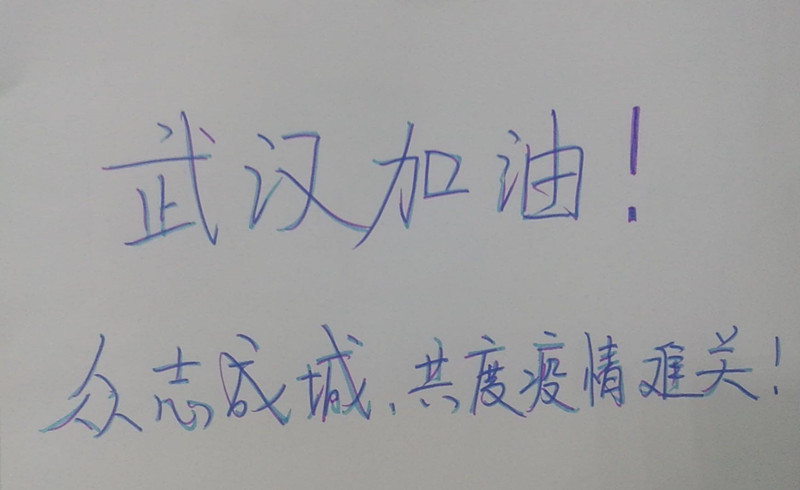 武汉加油!
众志成城,共度疫情难关!